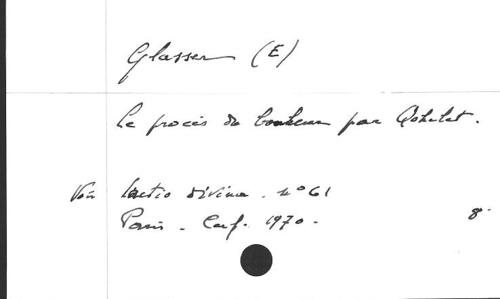 Glasser (E)
Le procès du bonheur par Qohelet.
Voir Lectio divina. n° 61
Paris. Cerf. 1970.
8°